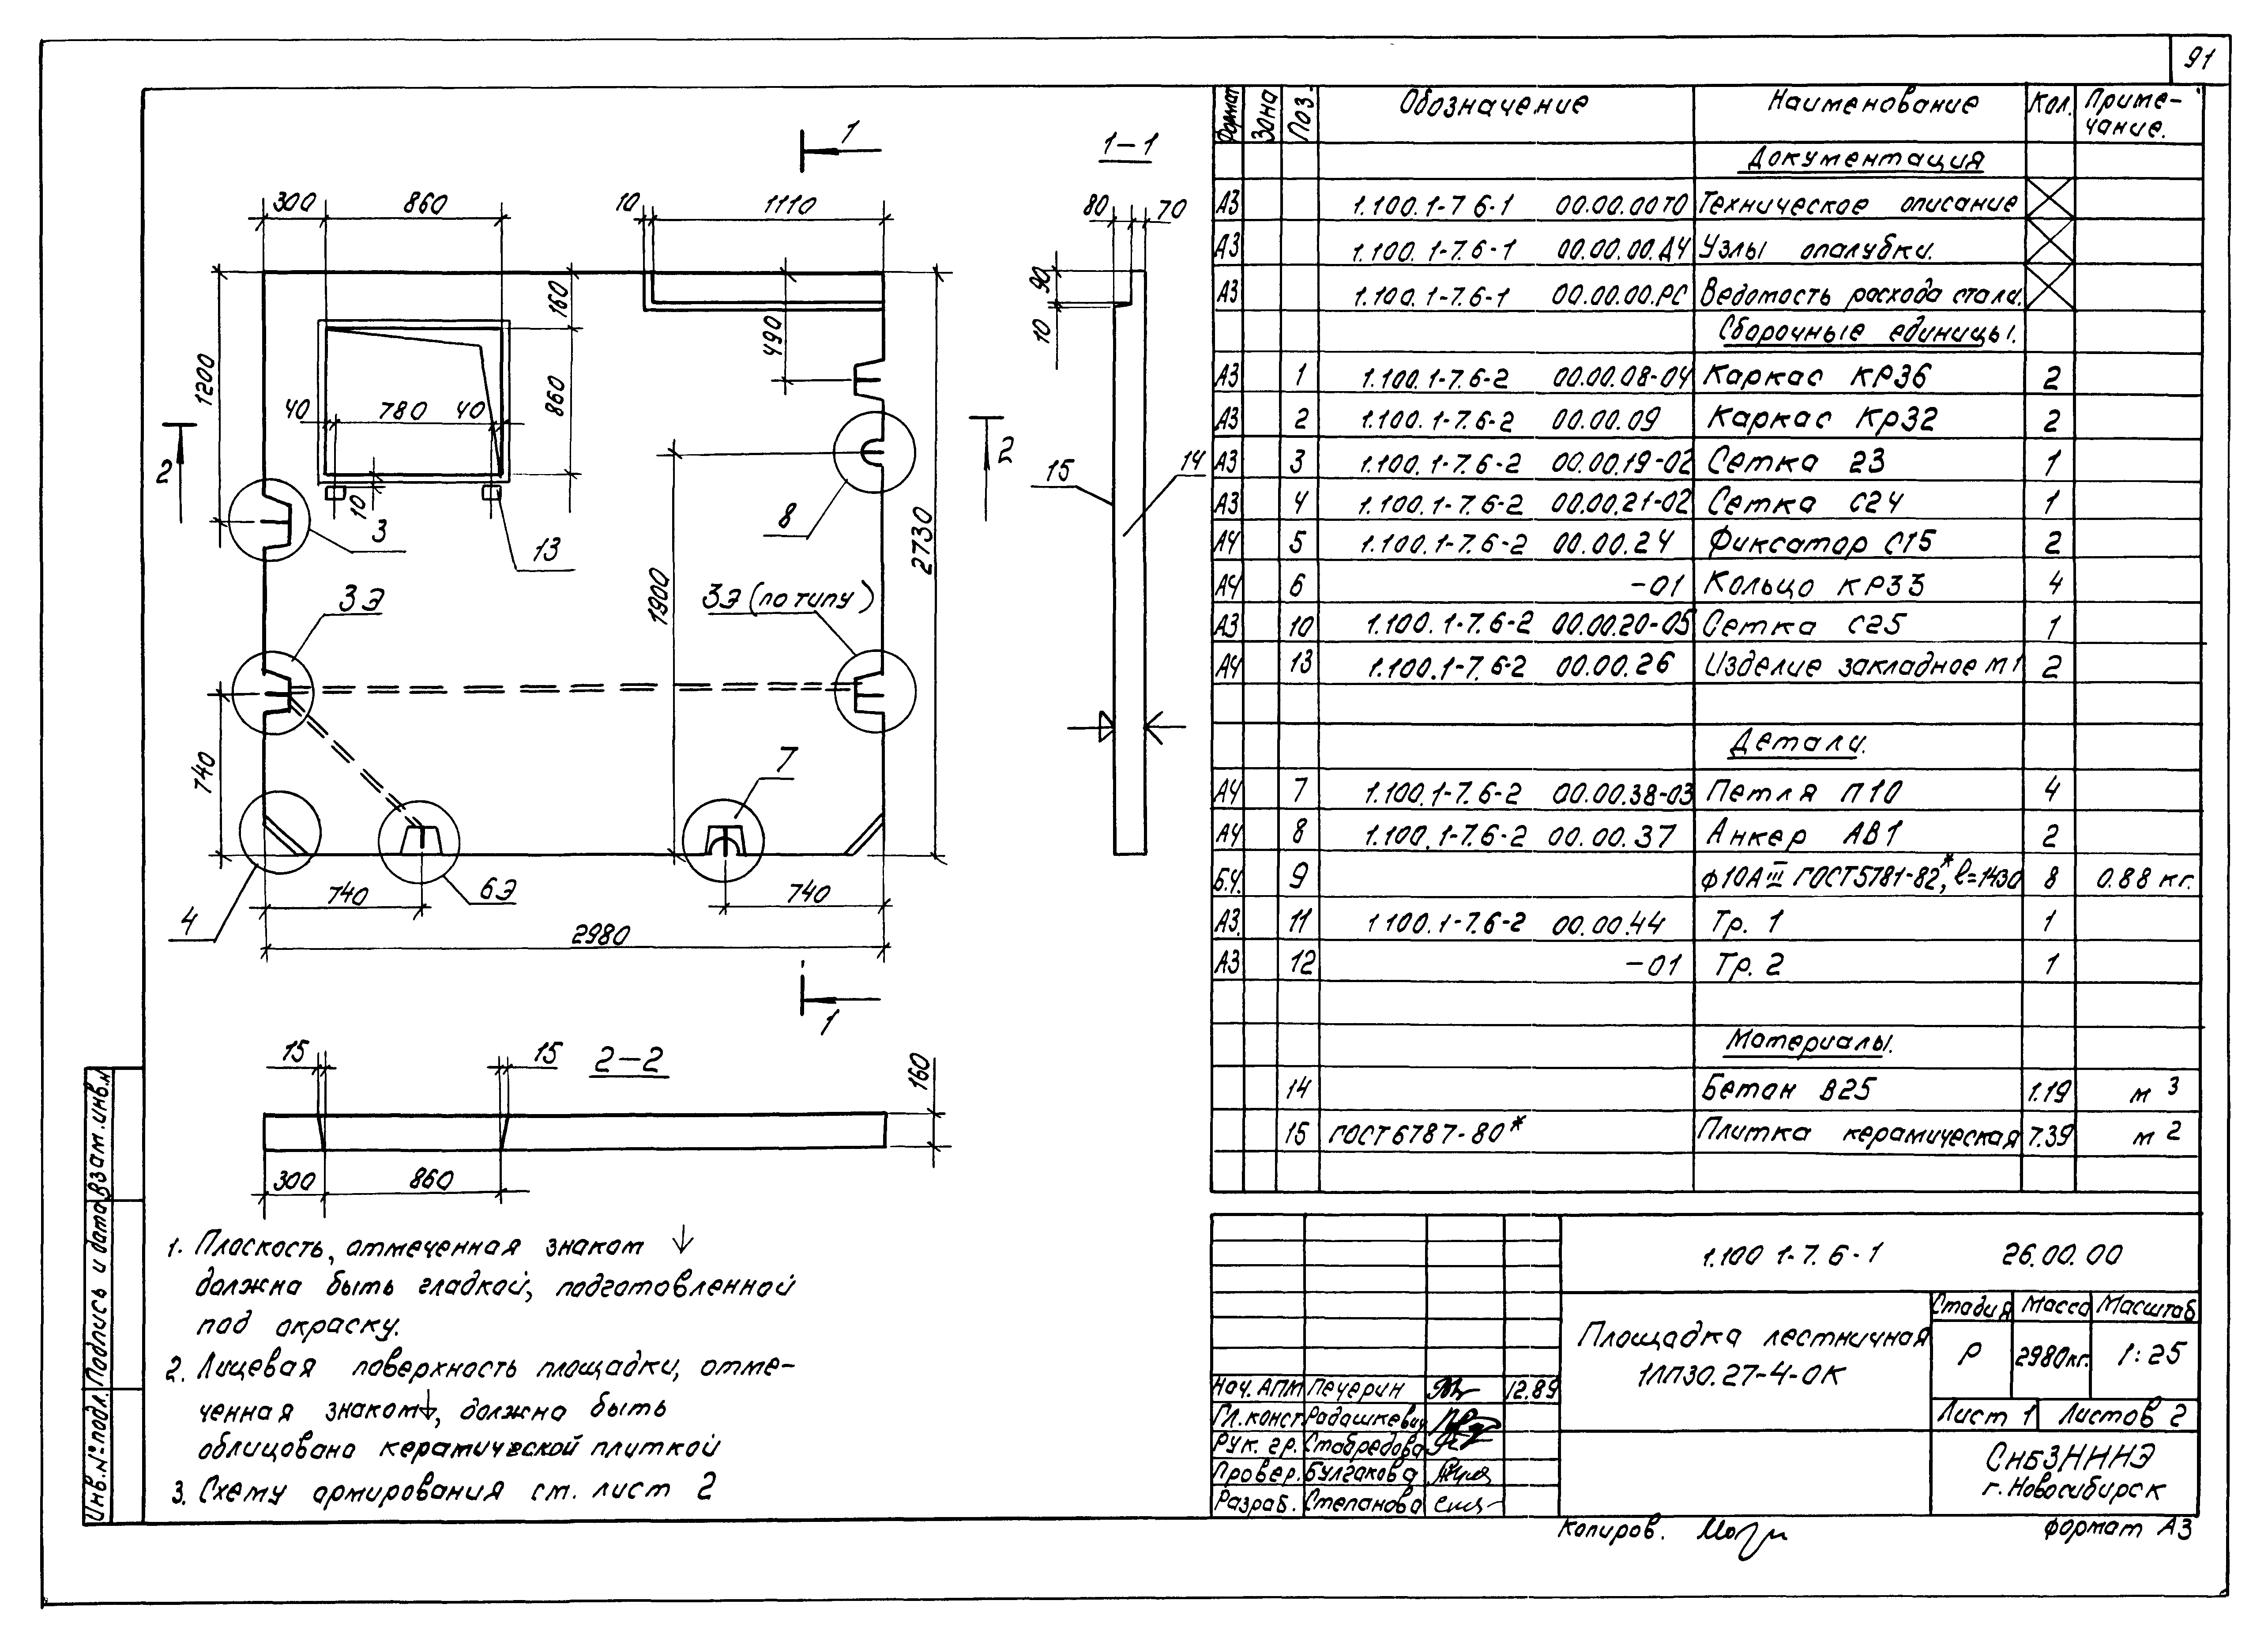 91
1
1-1
300 860 10 1110 80 70
160
490
90
10
1200
860
40 780 40
2
2
15
14
10
3
8
13
2730
3Э
3Э (по типу)
1900
740
7
740
6Э
740
4
2980
1
15 15 2-2
160
300 860
1. Плоскость, отмеченная знаком ↓
должна быть гладкой, подготовленной
под окраску.
2. Лицевая поверхность площадки, отме-
ченная знаком, должна быть
облицована керамической плиткой
3. Схему армирования см. лист 2
Формат Зона Поз. Обозначение Наименование Кол. Приме-
чание.
Документация
А3 1.100.1-7 6-1 00.00.00ТО Техническое описание
А3 1.100.1-7.6-1 00.00.00.Д4 Узлы опалубки.
А3 1.100.1-7.6-1 00.00.00.РС Ведомость расхода стали.
Сборочные единицы.
А3 1 1.100.1-7.6-2 00.00.08-04 Каркас КР36 2
А3 2 1.100.1-7.6-2 00.00.09 Каркас Кр32 2
А3 3 1.100.1-7.6-2 00.00.19-02 Сетка 23 1
А3 4 1.100.1-7.6-2 00.00.21-02 Сетка С24 1
А4 5 1.100.1-7.6-2 00.00.24 Фиксатор С15 2
А4 6 -01 Кольцо КР33 4
А3 10 1.100.1-7.6-2 00.00.20-05 Сетка С25 1
А4 13 1.100.1-7.6-2 00.00.26 Изделие закладное м1 2
Детали.
А4 7 1.100.1-7.6-2 00.00.38-03 Петля П10 4
А4 8 1.100.1-7.6-2 00.00.37 Анкер АВ1 2
Б.4. 9 ф10АIII ГОСТ5781-82*, ℓ=1430 8 0.88 кг.
А3. 11 1 100.1-7.6-2 00.00.44 Тр. 1 1
А3 12 -01 Тр. 2 1
Материалы.
14 Бетон В25 1.19 м 3
15 ГОСТ6787-80* Плитка керамическая 7.39 м 2
1.100 1-7.6-1 26.00.00
Площадка лестничная
1ЛП30.27-4-0К
Стадия Масса Масштаб
Р 2980кг. 1:25
Лист 1 Листов 2
Нач. АПМ Печерин 12.89
Гл.конст. Радашкевич
Рук. гр. Стабредова
Провер. Булгакова
Разраб. Степанова
СибЗНИИЭ
г. Новосибирск
Копиров. формат А3
Инв.№подл. Подпись и дата Взам.инв.№